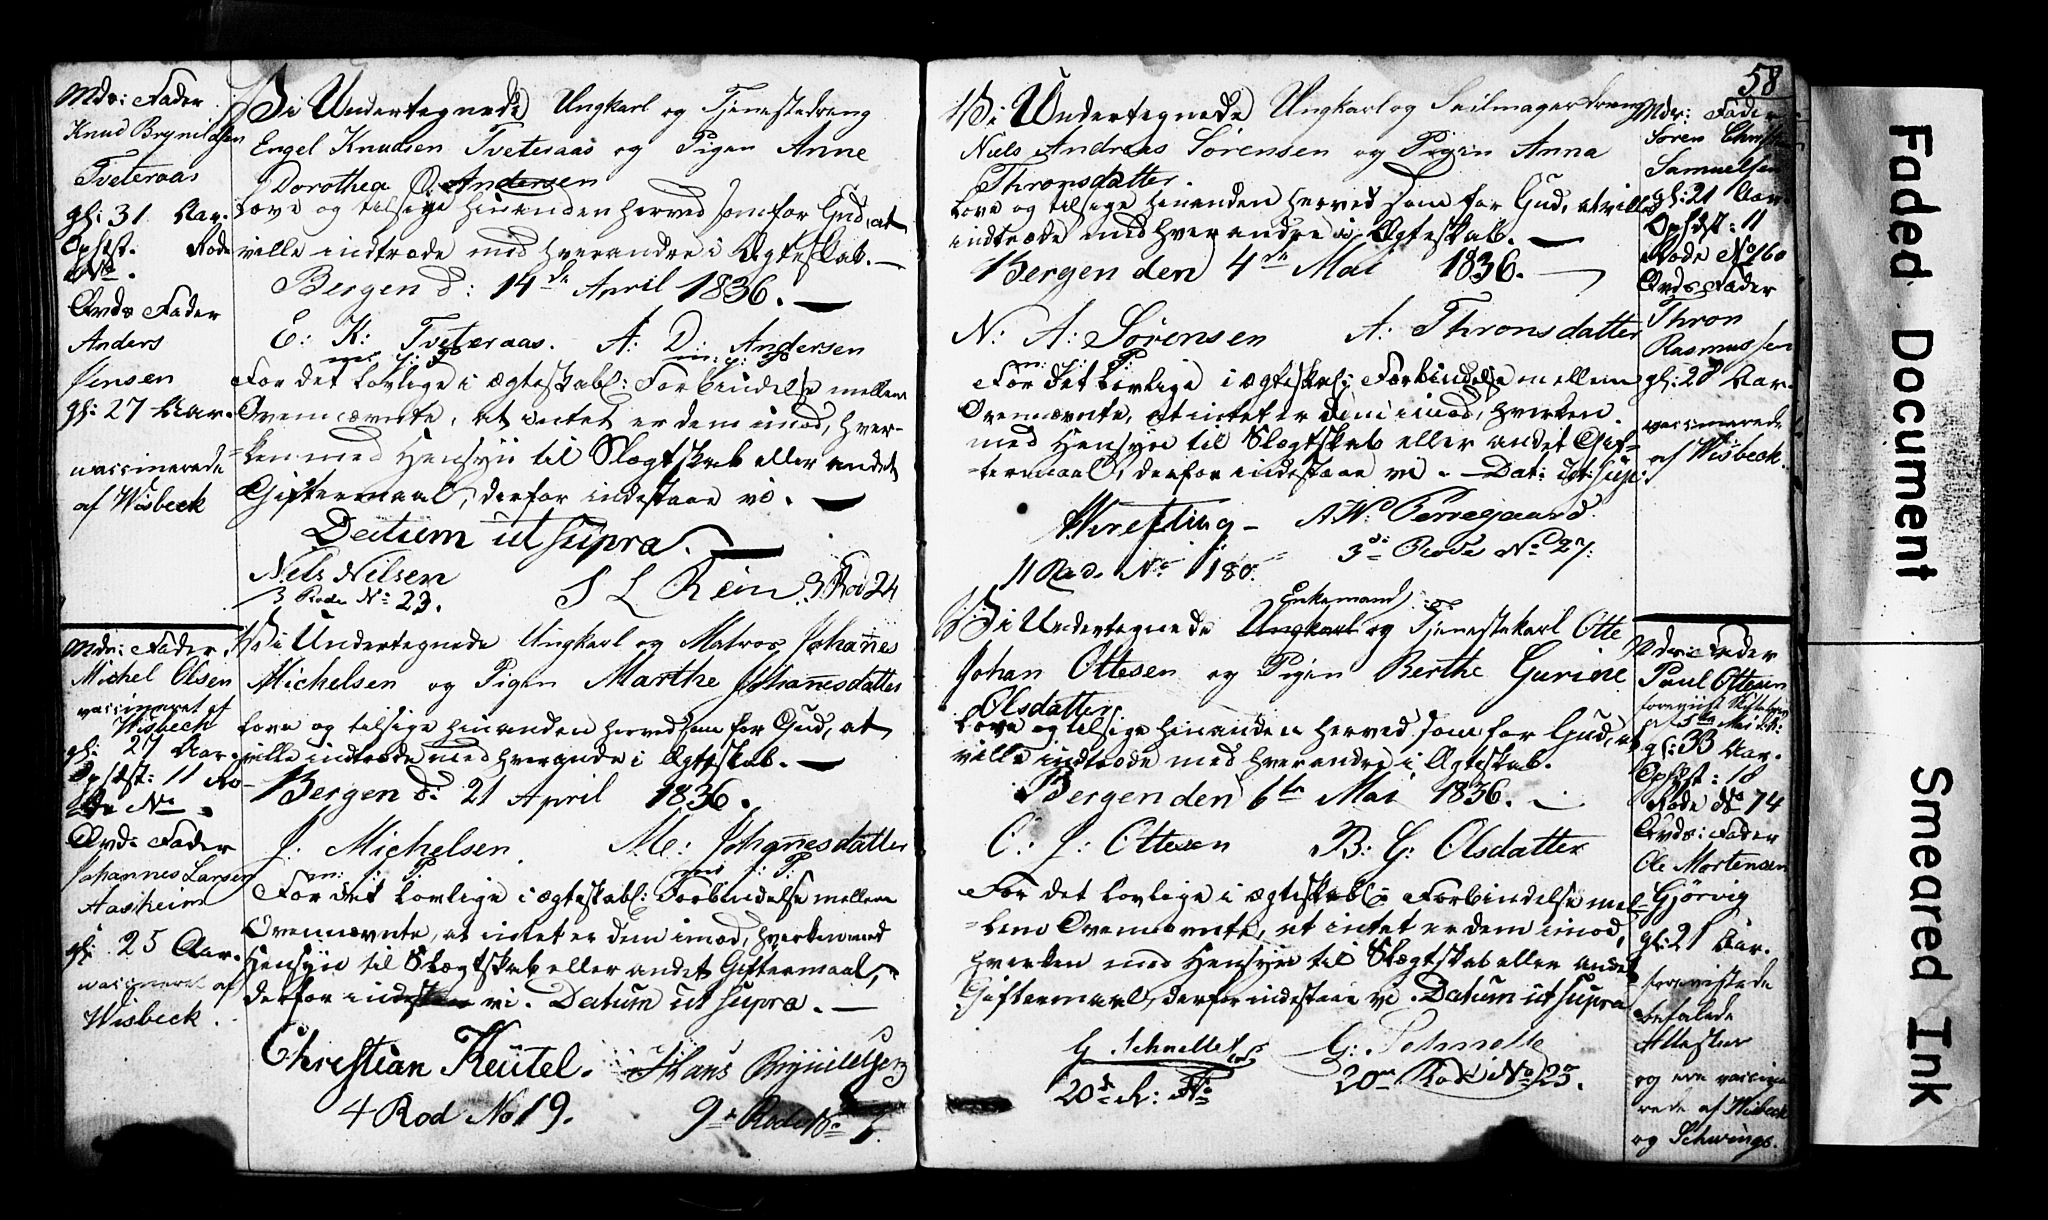 Mds: Fader
Knud Brynildsen
Tveteraas
gl: 31 Aar.
Ophdst. Rode
No.
Brds Fader
Anders
Jensen
gl: 27 Aar.
vaccinerede
af Wisbeck
Vi Undertegnede Ungkarl og Tjenestedreng
Engel Knudsen Tveteraas og Pigen Anne
Dorothea Andersen
love og tilsige hinanden herved som for Gud, at
ville indtræde med hverandre i Ægteskab.
Bergen d: 14de April 1836.
E: K: Tveteraas. A: D: Andersen
m: p: P m: p: P
For det lovlige i ægteskabl: Forbindelse mellem
Ovennævnte, at intet er dem imod, hver-
ken med Hensyn til Slægtskab eller andet
Giftermaal, derfor indestaae vi.
Datum ut supra.
Nels Nilsen S L Rein 3 Rod 24
3 Rode No 23.
Mds: Fader
Michel Olsen
vaccineret af
Wisbech
gl: 27 Aar.
Ophdst: 11 Ro-
de No
Brds Fader
Johannes Larsen
Aasheim
gl: 25 Aar.
vaccineret af
Wisbeck.
Vi Undertegnede Ungkarl og Matros Johanes
Michelsen og Pigen Marthe Johanesdatter
love og tilsige hinanden herved som for Gud, at
ville indtræde med hverandre i Ægteskab.
Bergen d: 21 April 1836.
J: Michelsen. M: Johanesdatter
m: p: P. med p: P.
For det lovlige i ægteskabl: Forbindelse mellem
Ovennævnte, at intet er dem imod, hverken med
Hensyn til Slægtskab eller andet Giftermaal,
derfor indestaae vi. Datum ut supra.
Christian Keutel. Hans Brynildsen
4 Rod No 19. 9de Rode No 7.
58
Vi Undertegnede Ungkarl og Seilmagerdreng
Niels Andreas Sørensen og Pigen Anna
Thronsdatter.
love og tilsige hinanden herved som for Gud, at ville
indtræde med hverandre i Ægteskab.
Bergen den 4de Mai 1836.
N: A: Sørensen A: Thronsdatter
m: p: P:
For det lovlige i ægteskabl: Forbindelse mellem
Ovennævnte, at intet er dem imod, hverken
med Hensyn til Slægtskab eller andet Gif-
termaal, derfor indestaae vi. Dat: ut: sup:
Krefting A W Pettegaard
3de Rode No 27.
11 Rode No 180.
Mds: Fader
Søren Christian
Samuelsen
gl: 21 Aar
Ophdst: 11
Rode No 160
Brds Fader
Thron
Rasmussen
gl: 28 Aar.
vaccinerede
af Wisbeck.
Enkemand
Vi Undertegnede Ungkarl og Tjenestekarl Otte
Johan Ottesen og Pigen Berthe Gurine
Olsdatter
love og tilsige hinanden herved som for Gud, at
ville indtræde med hverandre i Ægteskab.
Bergen den 6te Mai 1836.
O: J: Ottesen B: G: Olsdatter
For det lovlige i ægteskabl: Forbindelse mel-
lem Ovennævnte, at intet er dem imod,
hverken med Hensyn til Slægtskab eller andet
Giftermaal, derfor indestaae vi. Datum ut supra
G. Schnelle G: Schnelle
20de R: No 20de Rode No 25.
Mds: Fader
Paul Ottesen
foreviist
5te Mai
gl: 33 Aar.
Ophdst: 18
Rode No 74
Brds: Fader
Ole Mortensen
Gjørvig
gl: 21 Aar.
forevistede
befalede
Attester
og ere vaccine-
rede af Wisbeck
og Schwings.
Faded Document
Smeared Ink